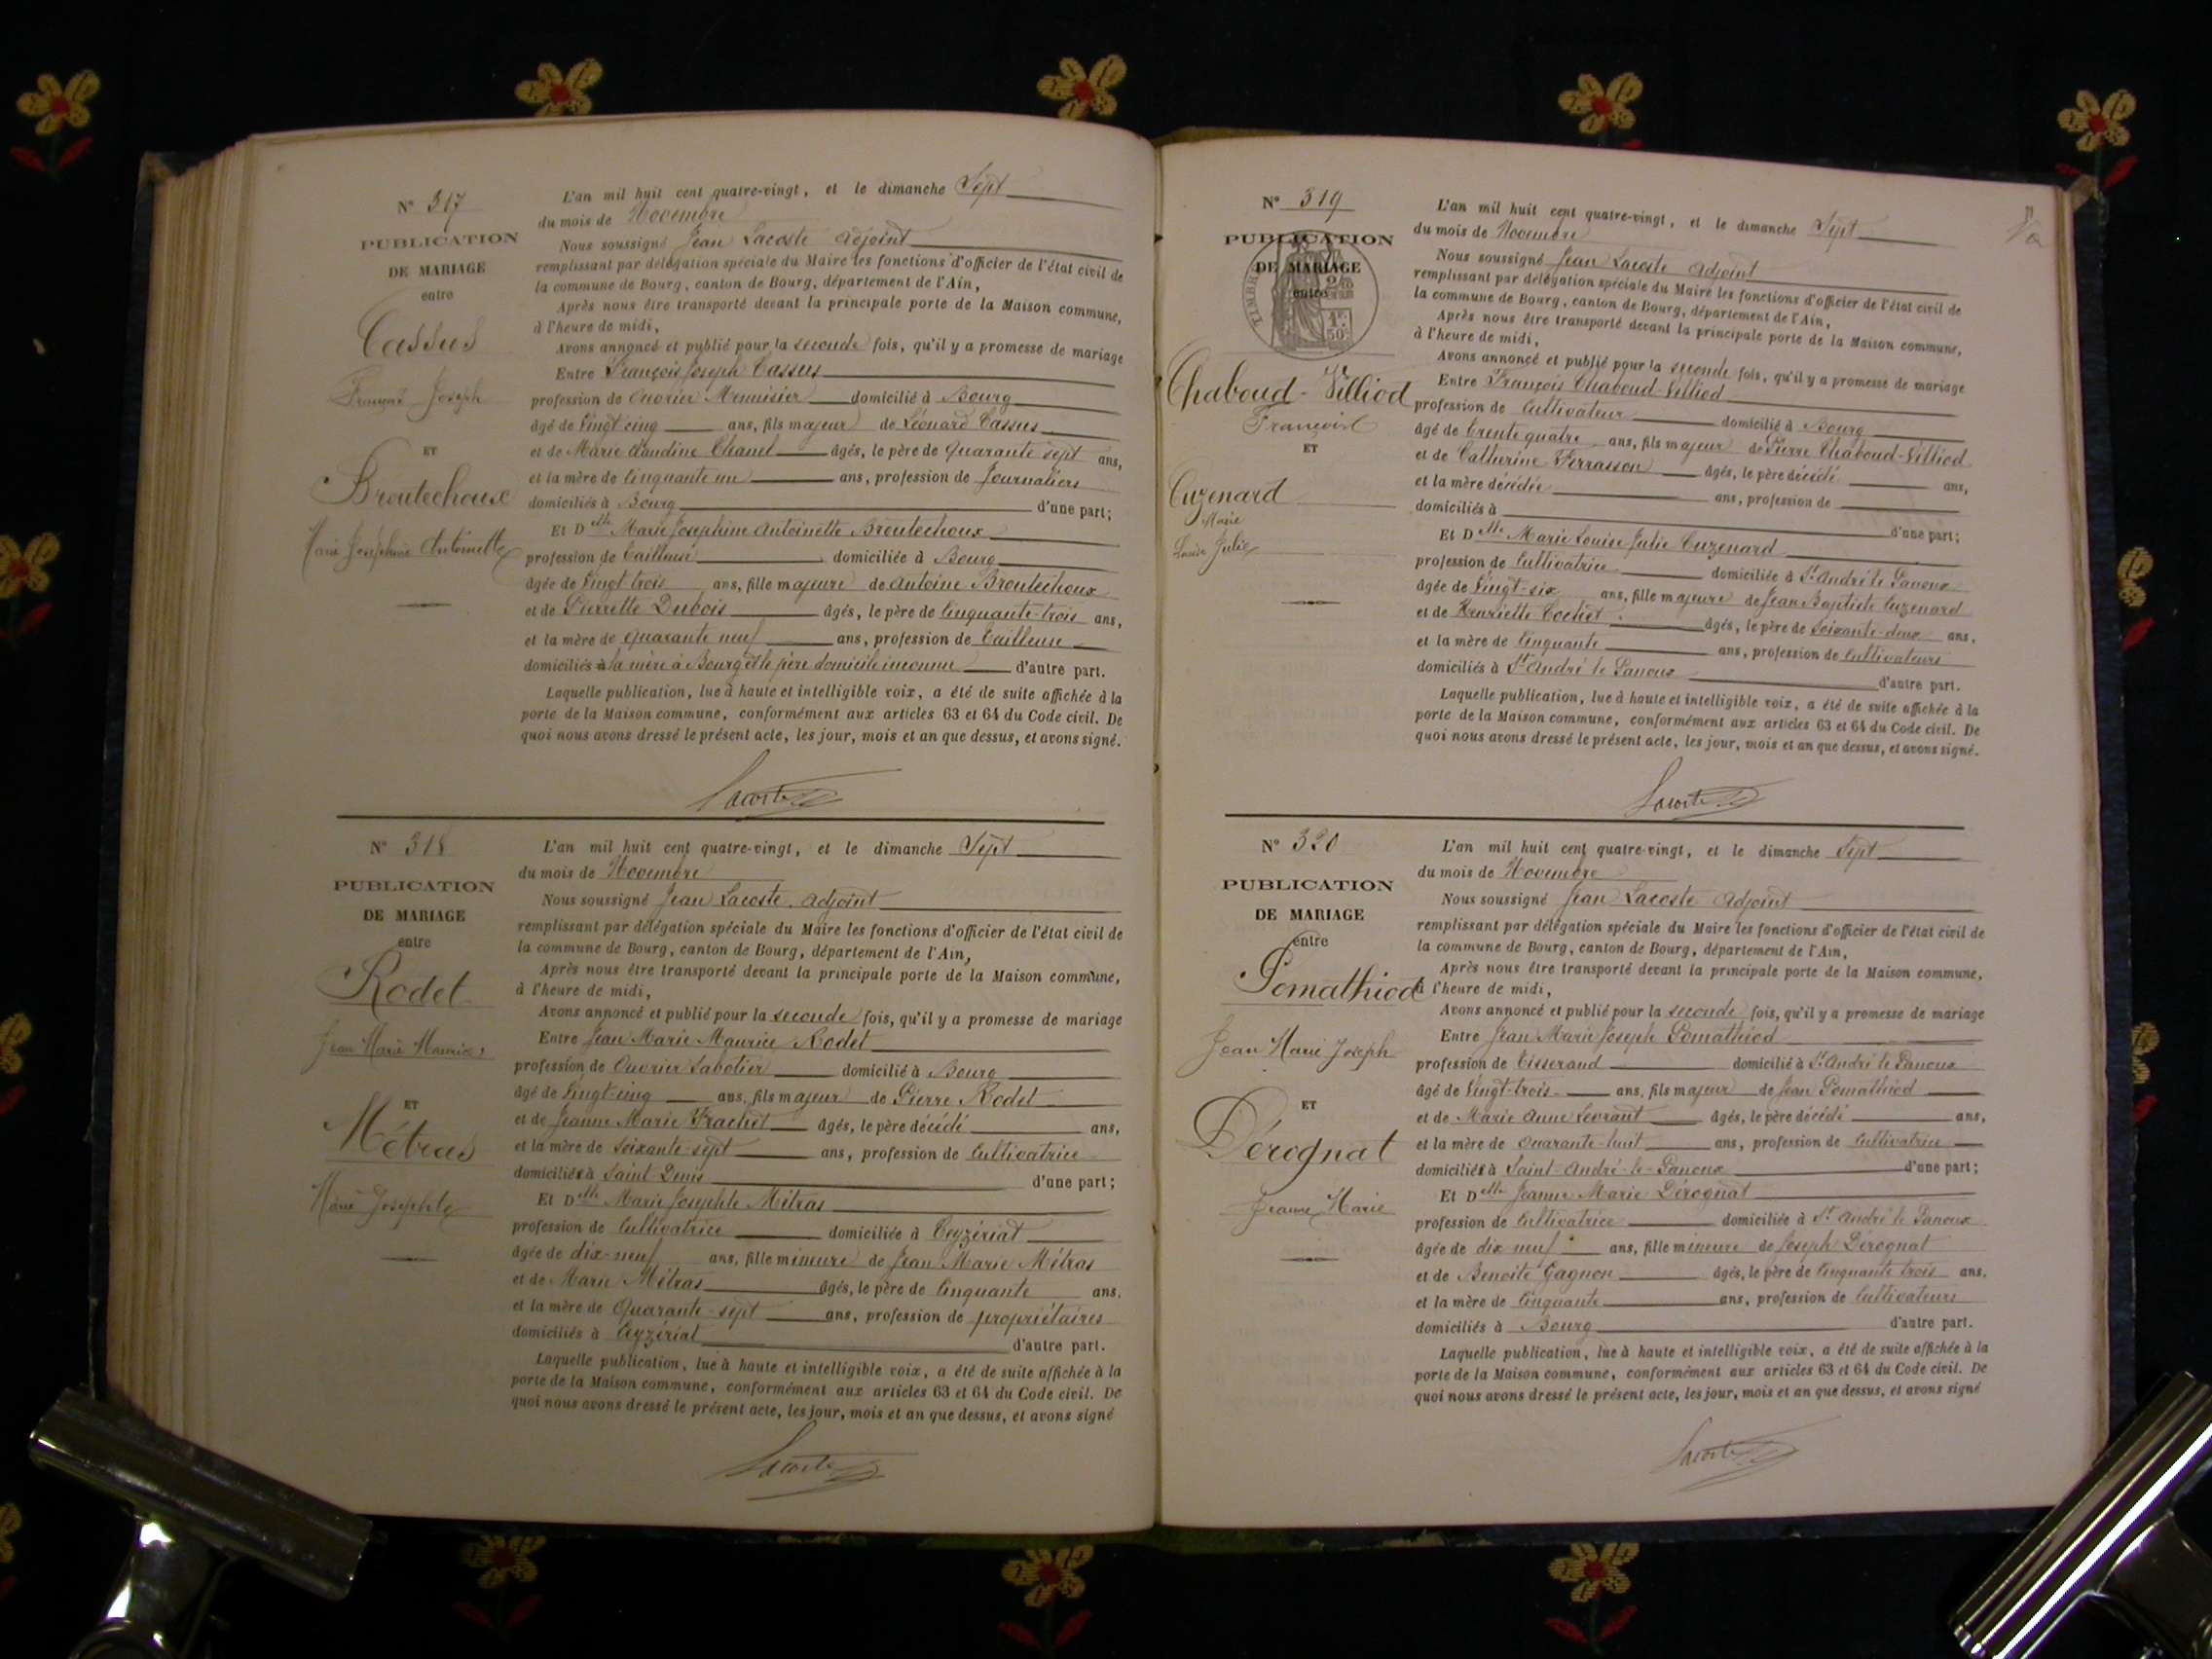 N° 317
PUBLICATION
DE MARIAGE
entre
Cassus
François Joseph
ET
Broutechoux
Marie Joséphine Antoinette
L'an mil huit cent quatre-vingt, et le dimanche Sept
du mois de Novembre
Nous soussigné Jean Lacoste adjoint
remplissant par délégation spéciale du Maire les fonctions d'officier de l'état civil de
la commune de Bourg, canton de Bourg, département de l'Ain,
Après nous être transporté devant la principale porte de la Maison commune,
à l'heure de midi,
Avons annoncé et publié pour la seconde fois, qu'il y a promesse de mariage
Entre François Joseph Cassus
profession de Ouvrier Menuisier domicilié à Bourg
âgé de Vingt cinq ans, fils majeur de Léonard Cassus
et de Marie Claudine Chanel âgés, le père de Quarante sept ans,
et la mère de Cinquante un ans, profession de Journaliers
domiciliés à Bourg d'une part;
Et Delle Marie Josephine Antoinette Broutechoux
profession de Tailleuse domiciliée à Bourg
âgée de Vingt trois ans, fille majeure de Antoine Broutechoux
et de Pierrette Dubois âgés, le père de Cinquante-trois ans,
et la mère de quarante neuf ans, profession de Tailleuse
domiciliés à la mère à Bourg et le père domicile inconnu d'autre part.
Laquelle publication, lue à haute et intelligible voix, a été de suite affichée à la
porte de la Maison commune, conformément aux articles 63 et 64 du Code civil. De
quoi nous avons dressé le présent acte, les jour, mois et an que dessus, et avons signé.
Lacoste
N° 318
PUBLICATION
DE MARIAGE
entre
Rodet
Jean Marie Maurice
ET
Métras
Marie Josephte
L'an mil huit cent quatre-vingt, et le dimanche Sept
du mois de Novembre
Nous soussigné Jean Lacoste, adjoint
remplissant par délégation spéciale du Maire les fonctions d'officier de l'état civil de
la commune de Bourg, canton de Bourg, département de l'Ain,
Après nous être transporté devant la principale porte de la Maison commune,
à l'heure de midi,
Avons annoncé et publié pour la seconde fois, qu'il y a promesse de mariage
Entre Jean Marie Maurice Rodet
profession de Ouvrier Sabotier domicilié à Bourg
âgé de Vingt-cinq ans, fils majeur de Pierre Rodet
et de Jeanne Marie Frachet âgés, le père décédé ans,
et la mère de Soixante-sept ans, profession de Cultivatrice
domiciliés à Saint Denis d'une part;
Et Delle Marie Josephte Métras
profession de Cultivatrice domiciliée à Ceyzériat
âgée de dix-neuf ans, fille mineure de Jean Marie Métras
et de Marie Métras âgés, le père de Cinquante ans.
et la mère de Quarante-sept ans, profession de propriétaires
domiciliés à Ceyzériat d'autre part.
Laquelle publication, lue à haute et intelligible voix, a été de suite affichée à la
porte de la Maison commune, conformément aux articles 63 et 64 du Code civil. De
quoi nous avons dressé le présent acte, les jour, mois et an que dessus, et avons signé
Lacoste
N° 319
PUBLICATION
DE MARIAGE
entre
TIMBRE
2/10
1F.
50C.
Chaboud-Villiod
François
ET
Cuzenard
Marie
Louise Julie
L'an mil huit cent quatre-vingt, et le dimanche Sept
du mois de Novembre
Nous soussigné Jean Lacoste adjoint
remplissant par délégation spéciale du Maire les fonctions d'officier de l'état civil de
la commune de Bourg, canton de Bourg, département de l'Ain,
Après nous être transporté devant la principale porte de la Maison commune,
à l'heure de midi,
Avons annoncé et publié pour la seconde fois, qu'il y a promesse de mariage
Entre François Chaboud-Villiod
profession de Cultivateur domicilié à Bourg
âgé de trente quatre ans, fils majeur de Pierre Chaboud-Villiod
et de Catherine Ferrasson âgés, le père décédé ans,
et la mère décédée ans, profession de
domiciliés à d'une part;
Et Delle Marie Louise Julie Cuzenard
profession de Cultivatrice domiciliée à St André le Panoux
âgée de Vingt-six ans, fille majeure de Jean Baptiste Cuzenard
et de Henriette Cochet âgés, le père de Soixante-deux ans.
et la mère de Cinquante ans, profession de Cultivateurs
domiciliés à St André le Panoux d'autre part.
Laquelle publication, lue à haute et intelligible voix, a été de suite affichée à la
porte de la Maison commune, conformément aux articles 63 et 64 du Code civil. De
quoi nous avons dressé le présent acte, les jour, mois et an que dessus, et avons signé.
Lacoste
N° 320
PUBLICATION
DE MARIAGE
entre
Pomathiod
Jean Marie Joseph
ET
Dérognat
Jeanne Marie
L'an mil huit cent quatre-vingt, et le dimanche Sept
du mois de Novembre
Nous soussigné Jean Lacoste adjoint
remplissant par délégation spéciale du Maire les fonctions d'officier de l'état civil de
la commune de Bourg, canton de Bourg, département de l'Ain,
Après nous être transporté devant la principale porte de la Maison commune,
à l'heure de midi,
Avons annoncé et publié pour la seconde fois, qu'il y a promesse de mariage
Entre Jean Marie Joseph Pomathiod
profession de Tisserand domicilié à St André le Panoux
âgé de Vingt-trois ans, fils majeur de Jean Pomathiod
et de Marie Anne Levrant âgés, le père décédé ans,
et la mère de Quarante-huit ans, profession de Cultivatrice
domiciliés à Saint-André-le-Panoux d'une part;
Et Delle Jeanne Marie Dérognat
profession de Cultivatrice domiciliée à St André le Panoux
âgée de dix neuf ans, fille mineure de Joseph Dérognat
et de Benoite Gagnon âgés, le père de Cinquante trois ans.
et la mère de Cinquante ans, profession de Cultivateurs
domiciliés à Bourg d'autre part.
Laquelle publication, lue à haute et intelligible voix, a été de suite affichée à la
porte de la Maison commune, conformément aux articles 63 et 64 du Code civil. De
quoi nous avons dressé le présent acte, les jour, mois et an que dessus, et avons signé
Lacoste